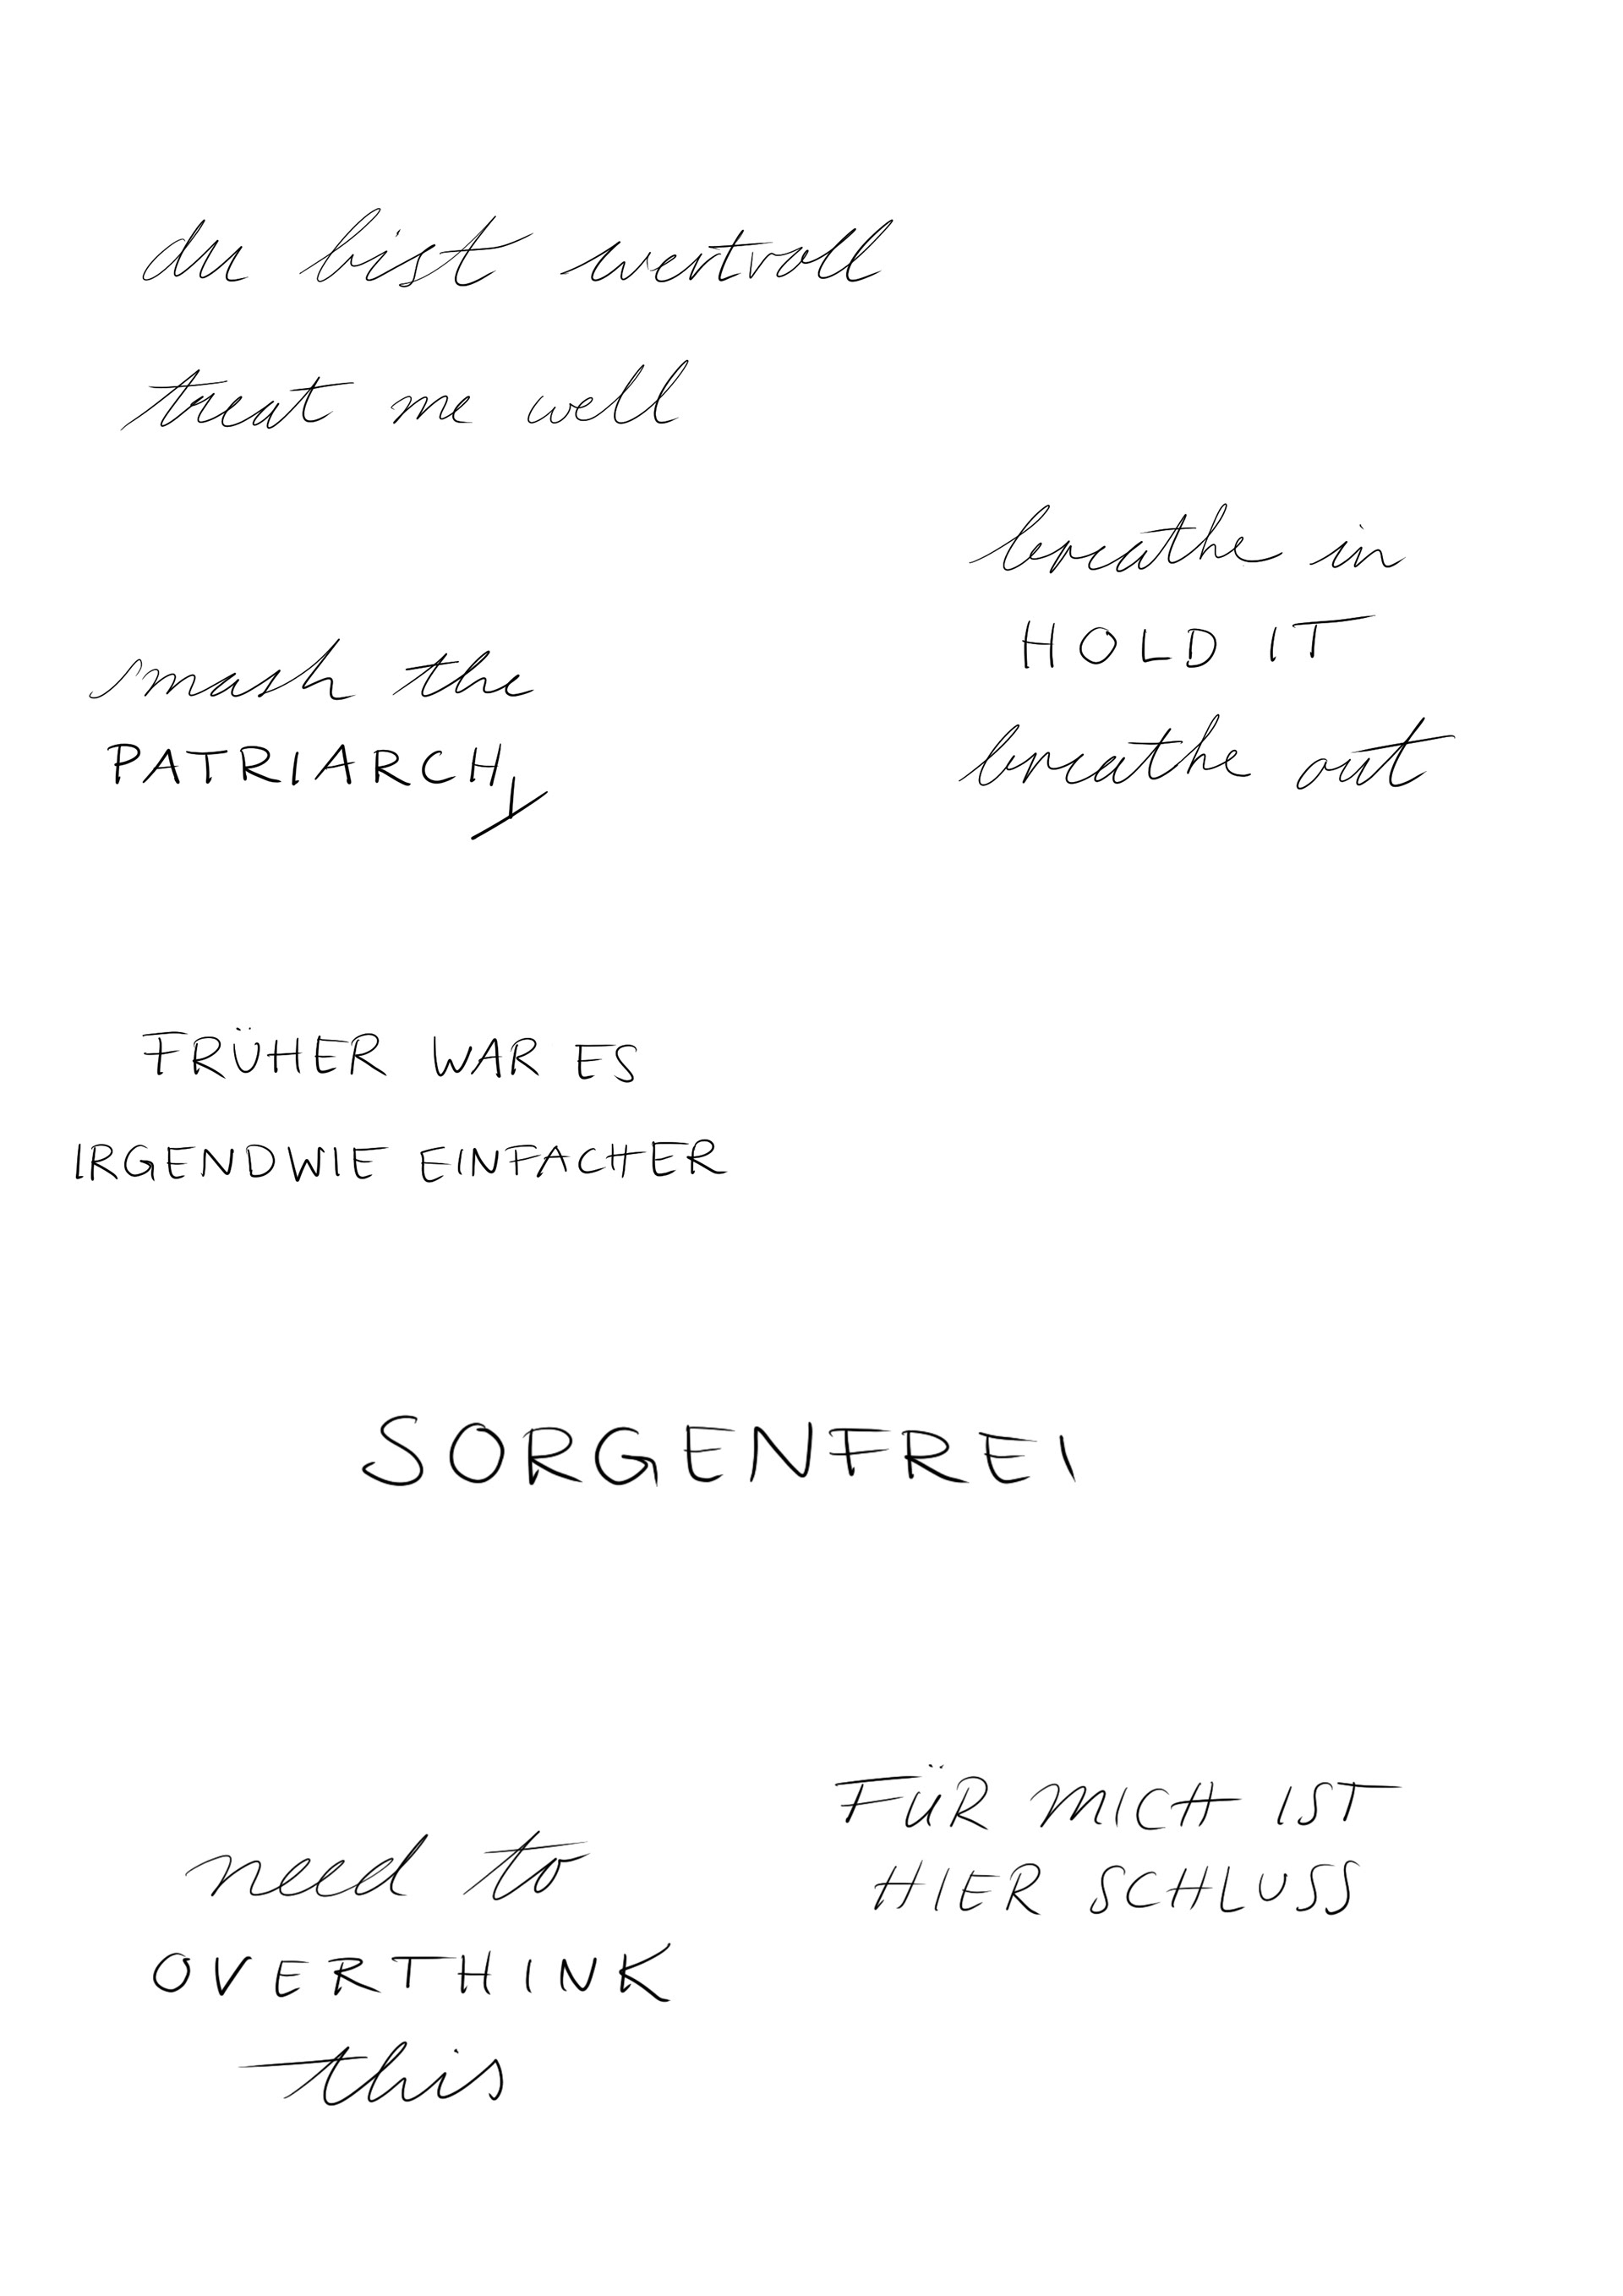 du bist wertvoll
treat me well
breathe in
HOLD IT
breathe out
smash the
PATRIARCHy
FRÜHER WAR ES
IRGENDWIE EINFACHER
SORGENFREI
FÜR MICH IST
HIER SCHLUSS
need to
OVERTHINK
this